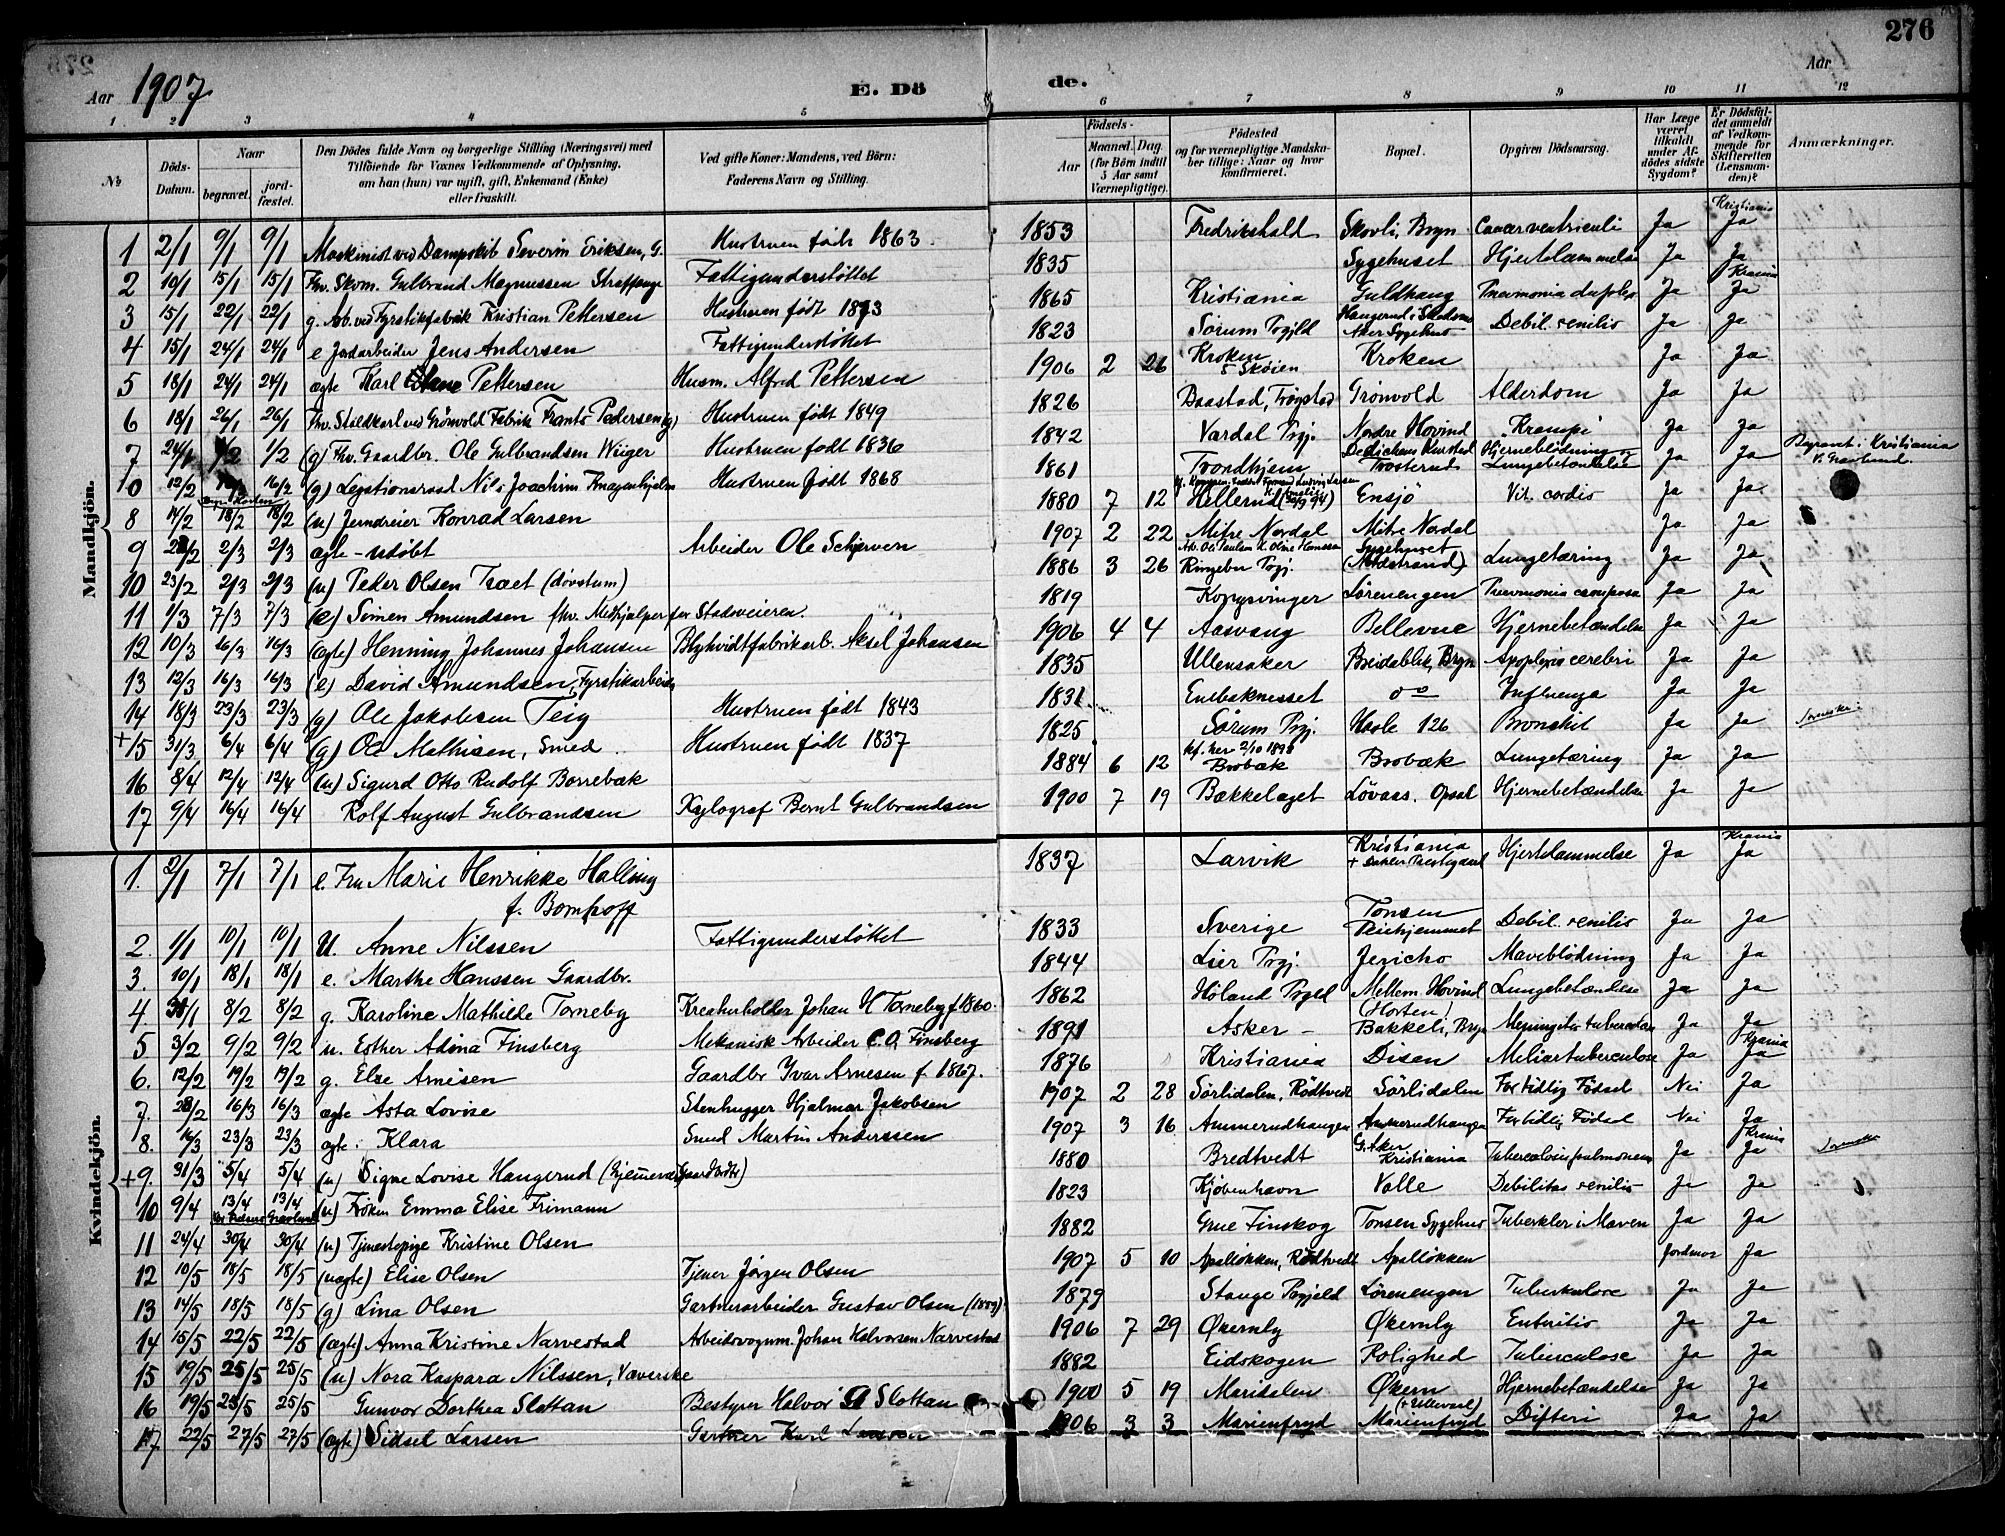 276
Aar 1907 E. Dö de. Aar
1 2 3 4 5 6 7 8 9 10 11 12
№
Döds-Datum.
Naar
begravet.
jordfæstet.
Den Dödes fulde Navn og borgerlige Stilling (Næringsvei) med
Tilföiende for Voxnes Vedkommende af Oplysning,
om han (hun) var ugift, gift, Enkemand (Enke)
eller fraskilt.
Ved gifte Koner: Mandens, ved Börn:
Faderens Navn og Stilling.
Födsels-
Aar
Maaned. Dag.
(for Börn indtil
5 Aar samt
Værnepligtige).
Födested
og for værnepligtige Mandskaber tillige: Naar og hvor
konfirmeret.
Bopæl.
Opgiven Dödsaarsag.
Har Læge
været
tilkaldt
under Afdödes sidste
Sygdom?
Er Dödsfaldet anmeldt
af Vedkommende for
Skifteretten
(Lensmanden)?
Anmærkninger.
Mandkjön.
1 2/1 9/1 9/1 Maskinist ved Dampskib Severin Eriksen, G. Hustruen födt 1863. 1853 Fredrikshald Skovli, Bryn Cancer ventriculi Ja Kristiania Ja
2 10/1 15/1 15/1 Fhv. Skom. Gulbrand Magnussen Fattigunderstöttet 1835 Sygehuset Hjertelammelse Ja Ja
3 15/1 22/1 22/1 g. Arb. ved Fyrstikfabrik Kristian Pettersen Hustruen födt 1873 1865 Kristiania Guldhaug Pneumonia duplex Ja Krania Ja
4 15/1 24/1 24/1 e Jordarbeider Jens Andersen Fattigunderstöttet 1823 Sørum Prgjld Aker Sygehus Debil. senilis Ja Ja
5 18/1 24/1 24/1 ægte Karl Pettersen Husm. Alfred Pettersen 1906 2 26 Kroken Skøien Kroken Ja Ja
6 18/1 26/1 26/1 Fhv. Staldkarl ved Grönvold Fabrik Frants Pedersen (g) Hustruen födt 1849 1826 Baastad, Trøgstad Grönvold Alderdom Ja Ja
7 24/1 1/2 1/2 (g) Fhv. Gaardbr. Ole Gulbrandsen Wiiger Hustruen födt 1836 1842 Vardal Prgj. Nordre Hovind "Krampe" Ja Ja
0 12/2 16/2 (g) Legationsraad Nils Joachim Knagenhjelm Hustruen födt 1868 1861 Trondhjem Dedichens Kursted Trosterud Hjerneblödning og Lungebetændelse Ja Ja Begravet i Kristiania V. Gravlund.
8 14/2 18/2 18/2 (u) Jerndreier Konrad Larsen 1880 7 12 Hellerud Ensjö Vit. cordis Ja Ja
9 2/3 2/3 ægte - udöbt Arbeider Ole Schjerven 1907 2 22 Mitre Nordal Mitre Nordal Ja Ja
10 23/2 2/3 2/3 (u) Peder Olsen Træet (dövstum) 1886 3 26 Ringebu Prgj. Sygehuset (Nordstrand) Lungetæring Ja Ja
11 1/3 7/3 7/3 (e) Simen Amundsen fhv. Medhjælper for Stadsveieren. 1819 Kongsvinger Lörenengen Pneumonia crouposa Ja Ja
12 10/3 16/3 16/3 (ægte) Henning Johannes Johansen Blyhvidtfabrikarb. Aksel Johansen 1906 4 4 Aasvang Bellevue Hjernebetændelse Ja Ja
13 12/3 16/3 16/3 (e) David Amundsen, Fyrstikarbeider 1835 Ullensaker Breidablik, Bryn Apoplexia cerebri Ja Ja
14 18/3 23/3 23/3 (g) Ole Jakobsen Teig Hustruen födt 1843 1831 Enebaknesset do Influenza Ja Ja
+15 31/3 6/4 6/4 (g) Ole Mathisen, Smed. Hustruen födt 1837 1825 Sørum Prgj. Hasle 126 Bronkit Ja Ja
16 8/4 12/4 12/4 (u) Sigurd Otto Rudolf Borrebæk 1884 6 12 kf. her 2/10 1898 Brobæk Brobæk Lungetæring Ja Ja
17 9/4 16/4 16/4 Rolf August Gulbrandsen Xylograf Bernt Gulbrandsen 1900 7 19 Bækkelaget Løvaas. Opsal Hjernebetændelse Ja Ja
Kvindekjön.
1. 2/1 7/1 7/1 e. Fru Marie Henrikke Halling 1837 Larvik Kristiania Hjertelammelse Ja Krania Ja
f. Bomhoff
2. 1/1 10/1 10/1 U. Anne Nilssen Fattigunderstöttet 1833 Sverige Tonsen Pleiehjemmet Debil. senilis Ja Ja
3. 10/1 18/1 18/1 e. Marthe Hanssen Gaardbr. 1844 Lier Prgj. Jericho Maveblödning Ja Ja
4 31/1 8/2 8/2 g. Karoline Mathilde Torneby Kreaturholder Johan H Torneby f. 1860. 1862 Höland Prgld Mellem Hovind Lungebetændelse Ja Ja
5 3/2 9/2 9/2 u. Esther Adina Finsberg Mekanisk Arbeider C.O. Finsberg 1891 Asker - (Horten) Bakkeli, Bryn Meningitis tuberculosa Ja Ja
6. 12/2 19/2 19/2 g. Else Arnesen Gaardbr Ivar Arnesen f. 1867. 1876 Kristiania Disen Miliartuberculose Ja Krania Ja
7. 28/2 16/3 16/3 ægte Asta Lovise Stenhugger Hjalmar Jakobsen 1907 2 28 Sörlidalen, Rödtvedt Sörlidalen For tidlig Födsel Nei Ja
8. 16/3 23/3 23/3 ægte Klara Smed Martin Anderssen 1907 3 16 Ammerudhaugen Ammerudhaugen For tidlig Födsel Nei Ja
+9. 31/3 5/4 5/4 (u) Signe Lovise Haugerud 1880 Bredtvedt G. Aker Kristiania Tuberculosis pulmonum Ja Krania Ja
10 9/4 13/4 13/4 (u) Fröken Emma Elise Frimann 1823 Kjöbenhavn Valle Debilitas senilis Ja Ja
11 24/4 30/4 30/4 (u) Tjenestepige Kristine Olsen 1882 Grue Finskog Tonsen Sygehus Tuberkler i Maven Ja Ja
12 10/5 18/5 18/5 (uægte) Elise Olsen Tjener Jörgen Olsen 1907 5 10 Apalløkken, Rødtvedt Apalløkken Jordmor Ja
13 14/5 18/5 18/5 (g) Lina Olsen Gartnerarbeider Gustav Olsen 1879 Stange Prgjeld Lörenengen Tuberkulose Ja Ja
14 15/5 22/5 22/5 (ægte) Anna Kristine Narvestad Arbeidsvogum. Johan Halvorsen Narvestad 1906 7 29 Økernly Økernly Enteritis Ja Ja
15 19/5 25/5 25/5 (u) Nora Kaspara Nilssen, Væverske 1882 Eidskogen Rolighed Tuberculose Ja Ja
16 19/5 25/5 25/5 Gunvor Dorthea Slottan Bestyrer Halvor A Slottan 1900 5 19 Maridalen Økern (+ Ullevaal) Hjernebetændelse Ja Ja
17 22/5 27/5 27/5 (ægte) Sidsel Larsen Gartner Karl Larsen 1906 3 3 Marienfryd Marienfryd Difteri Ja Ja